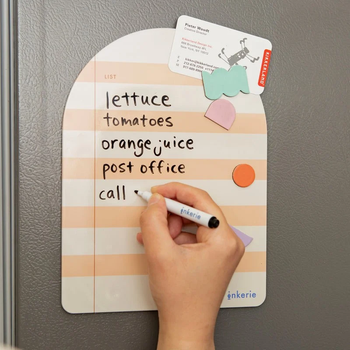 LIST
lettuce
tomatoes
orange juice
post office
call
inkerie
inkerie
KIKKERLAND